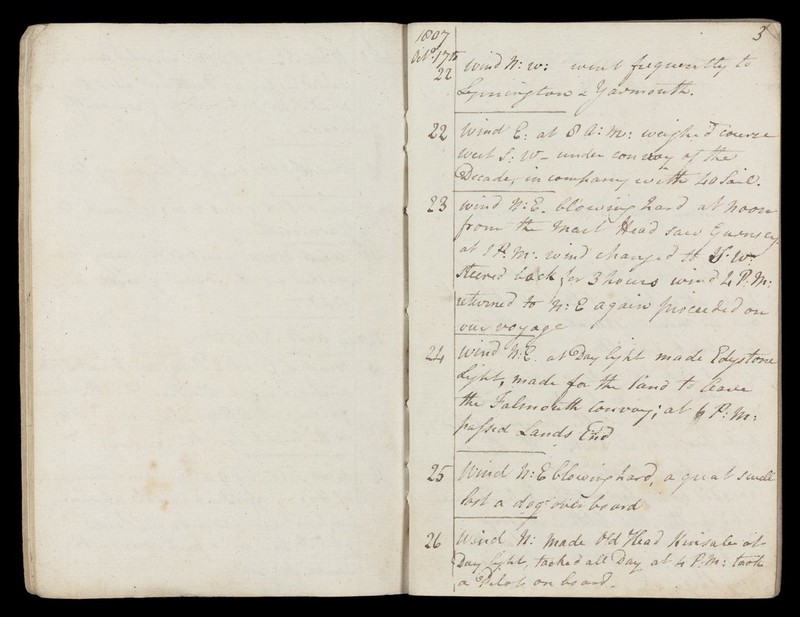 3
1807
Octr. 17th wind N: W: went frequently to
22 Lymington & Yarmouth.
22 Wind E: at 8 A: M: weighed course
West S: W - under convoy of the
Decade, in company with 40 Sail.
23 wind N: E. blowing hard at noon
from the Mast Head saw Guernsey
at 1 P. M: wind changed to S. W:
steered back for 3 hours wind 4 P: M:
returned to N: E again proceeded on
our voyage
24 Wind N: E. at Day light made Edystone
Light, made for the land to leave
the Falmouth Convoy; at 6 P: M:
passed Lands End
25 Wind N: E blowing hard, a great swell
lost a dog over board
26 Wind N: made Old Head Kinsale at
Day light, tacked all Day at 4 P. M: took
a Pilot on board.